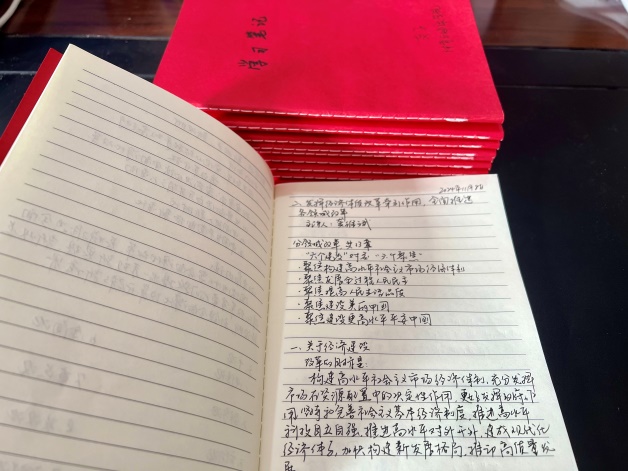 学习笔记
2024年11月8日
二、发挥经济体制改革牵引作用，全面推进
各领域改革
主讲人：
分领域改革 共12章
"六个建设"对应"六个聚焦"
·聚焦构建高水平社会主义市场经济体制
·聚焦发展全过程人民民主
·聚焦提高人民生活品质
·聚焦建设美丽中国
·聚焦建设更高水平平安中国
一、关于经济建设
改革的目标是：
构建高水平社会主义市场经济体制，充分发挥
市场在资源配置中的决定性作用，更好发挥政府作
用，坚持和完善社会主义基本经济制度，推进高水平
科技自立自强，推进高水平对外开放，建成现代化
经济体系，加快构建新发展格局，推动高质量发
展